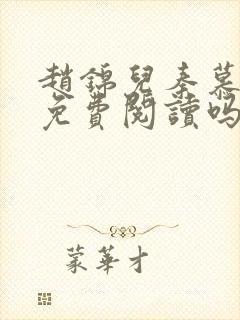 趙錦兒秦慕
免費閱讀吗
蒙華才